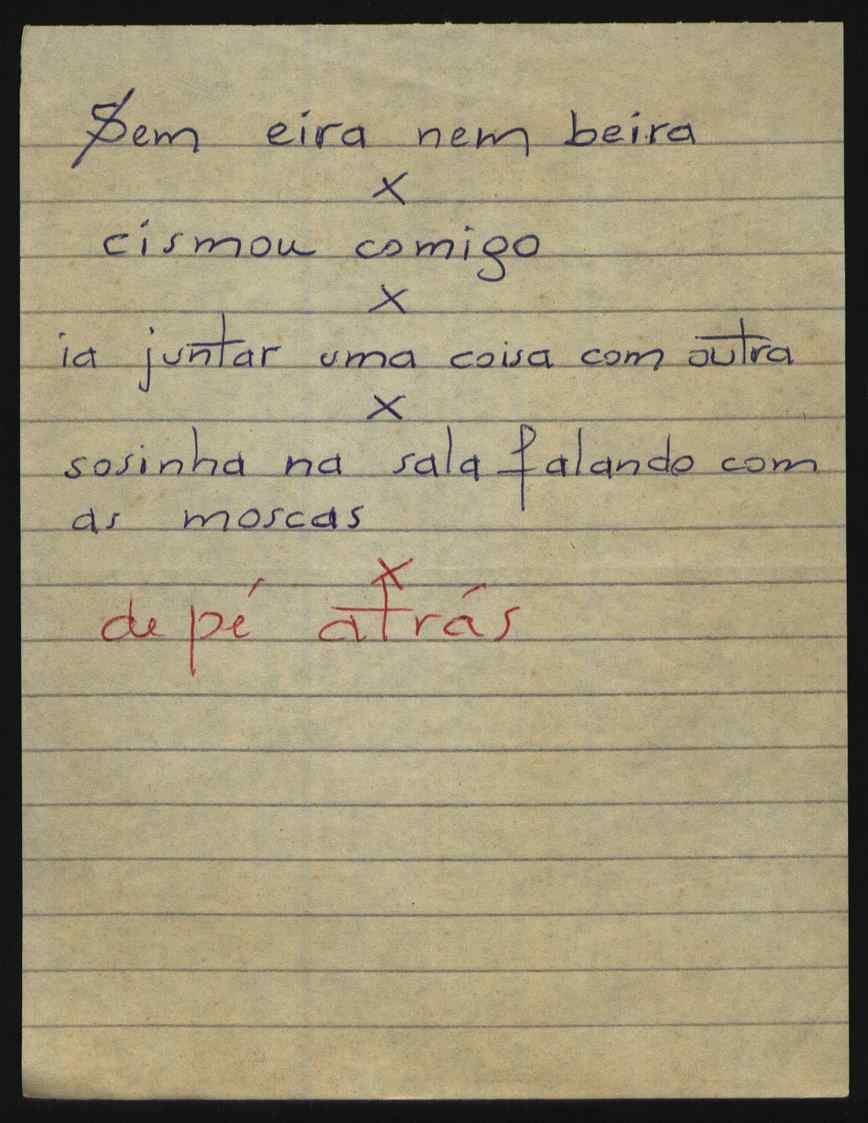 Sem eira nem beira
x
cismou comigo
x
ia juntar uma coisa com outra
x
sosinha na sala falando com
as moscas
x
de pé atrás